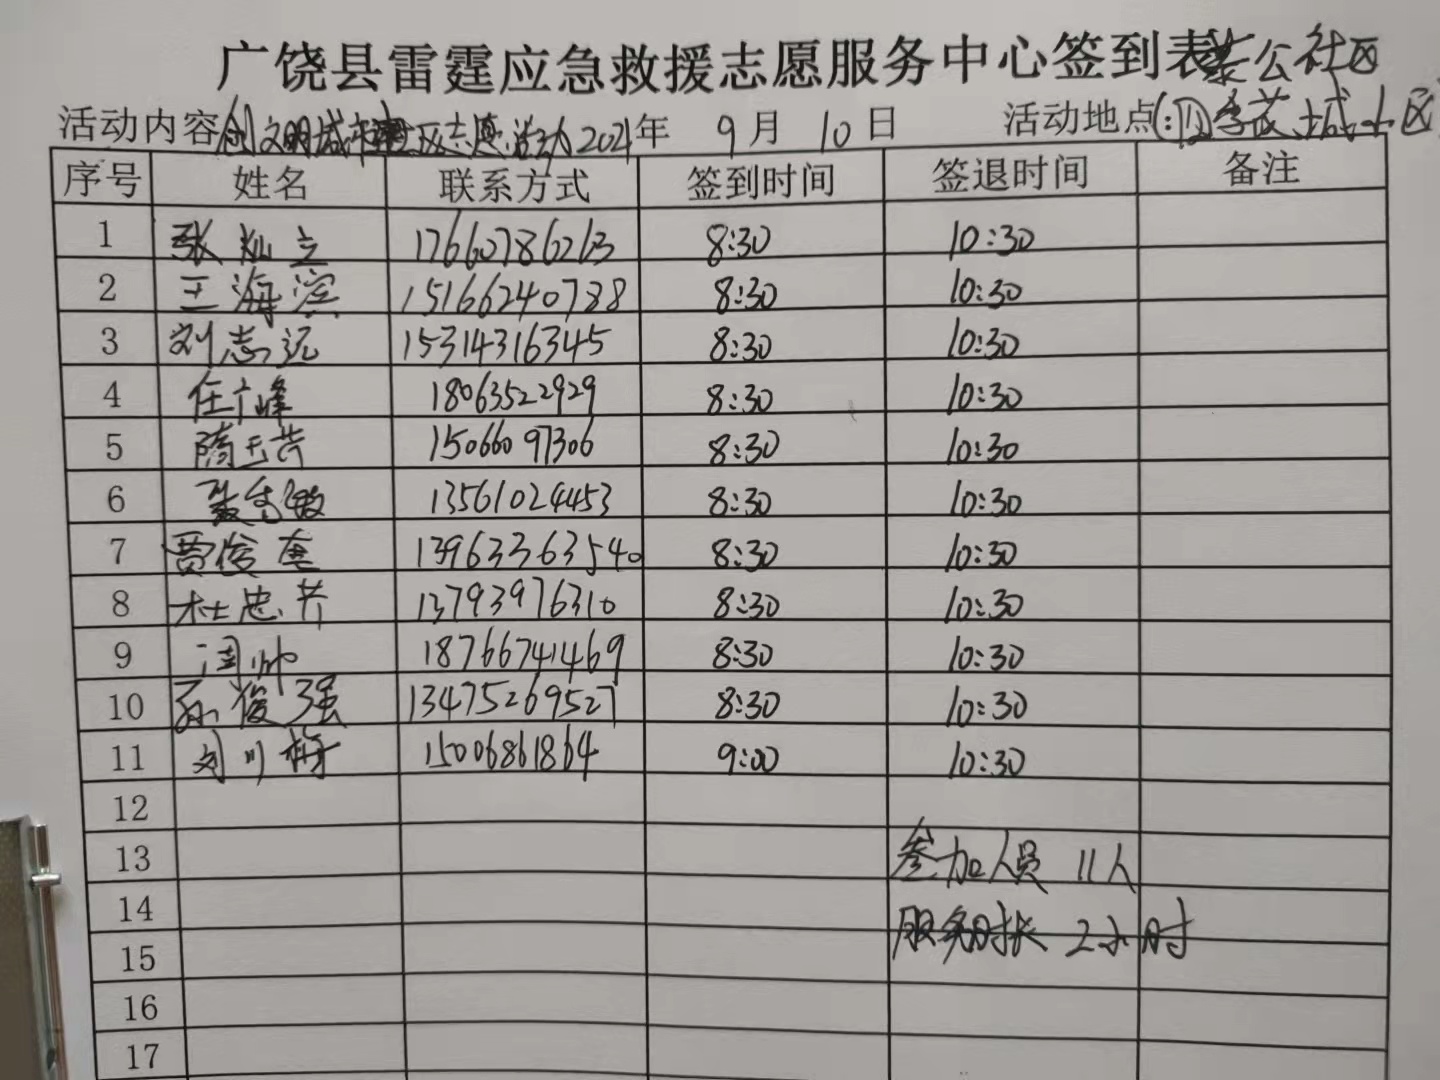 广饶县雷霆应急救援志愿服务中心签到表 乐公社区
活动内容 创文明城市进社区志愿活动 2021年 9月 10日 活动地点: 城小区
序号 姓名 联系方式 签到时间 签退时间 备注
1 张灿立 17660786263 8:30 10:30
2 王海滨 15166240788 8:30 10:30
3 刘志远 15314316345 8:30 10:30
4 任广峰 18063522929 8:30 10:30
5 隋玉芹 15066097306 8:30 10:30
6 敏 13561024453 8:30 10:30
7 贾俊奎 13963363540 8:30 10:30
8 杜忠芳 13793976310 8:30 10:30
9 闫帅 18766741469 8:30 10:30
10 孙俊强 13475269527 8:30 10:30
11 刘川梅 15006861864 9:00 10:30
12
13 参加人员 11人
14 服务时长 2小时
15
16
17